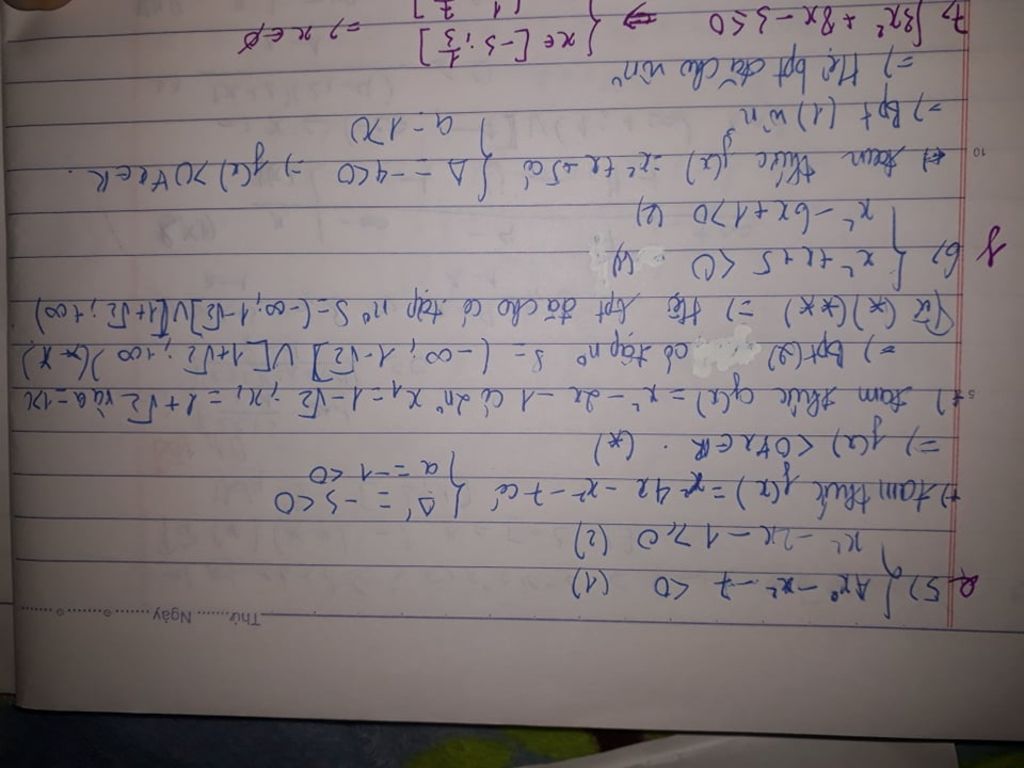 Thứ ........ Ngày ........
e, 5) { 4x - x² - 7 < 0 (1)
x² - 2x - 1 ≥ 0 (2)
+) tam thức f(x) = 4x - x² - 7 có { Δ' = -3 < 0
a = -1 < 0
=) f(x) < 0 ∀x ∈ R. (*)
5 +) tam thức g(x) = x² - 2x - 1 có 2 n° x₁ = 1 - √2; x₂ = 1 + √2 và a = 1 >
=) Bpt (2) có tập n° S = (-∞; 1-√2] ∪ [1+√2; +∞) (**)
Từ (*) (**) =) Hệ bpt đã cho có tập n° S = (-∞; 1-√2] ∪ [1+√2; +∞)
f 6) { x² + x + 5 < 0 (1)
x² - 6x + 1 > 0 (2)
10 +) tam thức f(x) = x² + x + 5 có { Δ = -19 < 0 =) f(x) > 0 ∀x ∈ R.
a = 1 > 0
=) Bpt (1) v n°
=) Hệ bpt đã cho v n°
7) { 3x² + 8x - 3 ≤ 0 ⇔ { x ∈ [-3; 1/3] =) x ∈ ∅